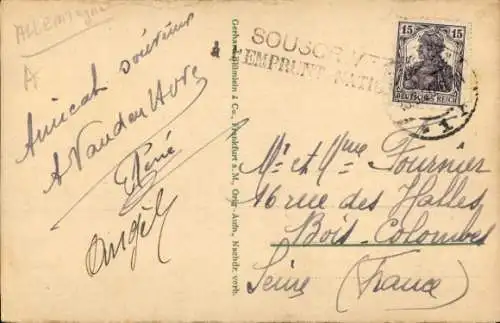 Allemagne
A
Amical souvenir
A Vanden
René
Angèle
Gerhard Blümlein & Co., Frankfurt a. M., Orig.-Aufn., Nachdr. verb.
SOUSCRIVEZ
à L'EMPRUNT NATIO
15 15
DEUTSCHES REICH
1
Mr et Mme Fournier
16 rue des Halles
Bois-Colombes
Seine (France)